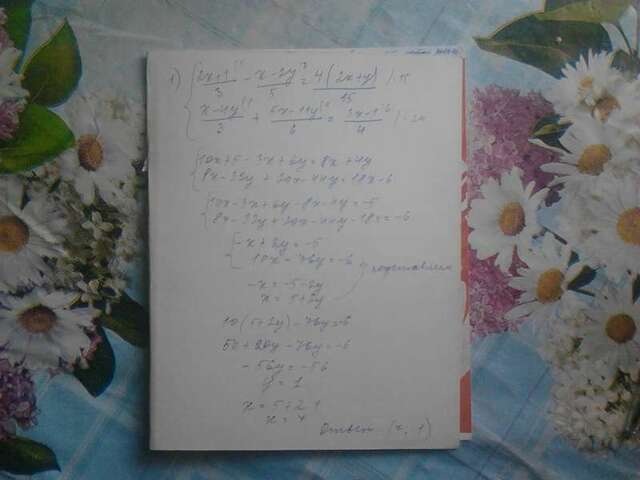 1) { (2x+1)/3 - (x-2y)/5 = 4(2x+y)/15 | · 15
(x-4y)/3 + (5x-11y)/6 = (3x-1)/4 | · 24
{ 10x+5-3x+6y=8x+4y
8x-32y+20x-44y=18x-6
{ 10x-3x+6y-8x-4y=-5
8x-32y+20x-44y-18x=-6
{ -x+2y=-5
10x-76y=-6
подставляем
-x=-5-2y
x=5+2y
10(5+2y)-76y=-6
50+20y-76y=-6
-56y=-56
y=1
x=5+2·1
x=7
Ответ (7; 1)